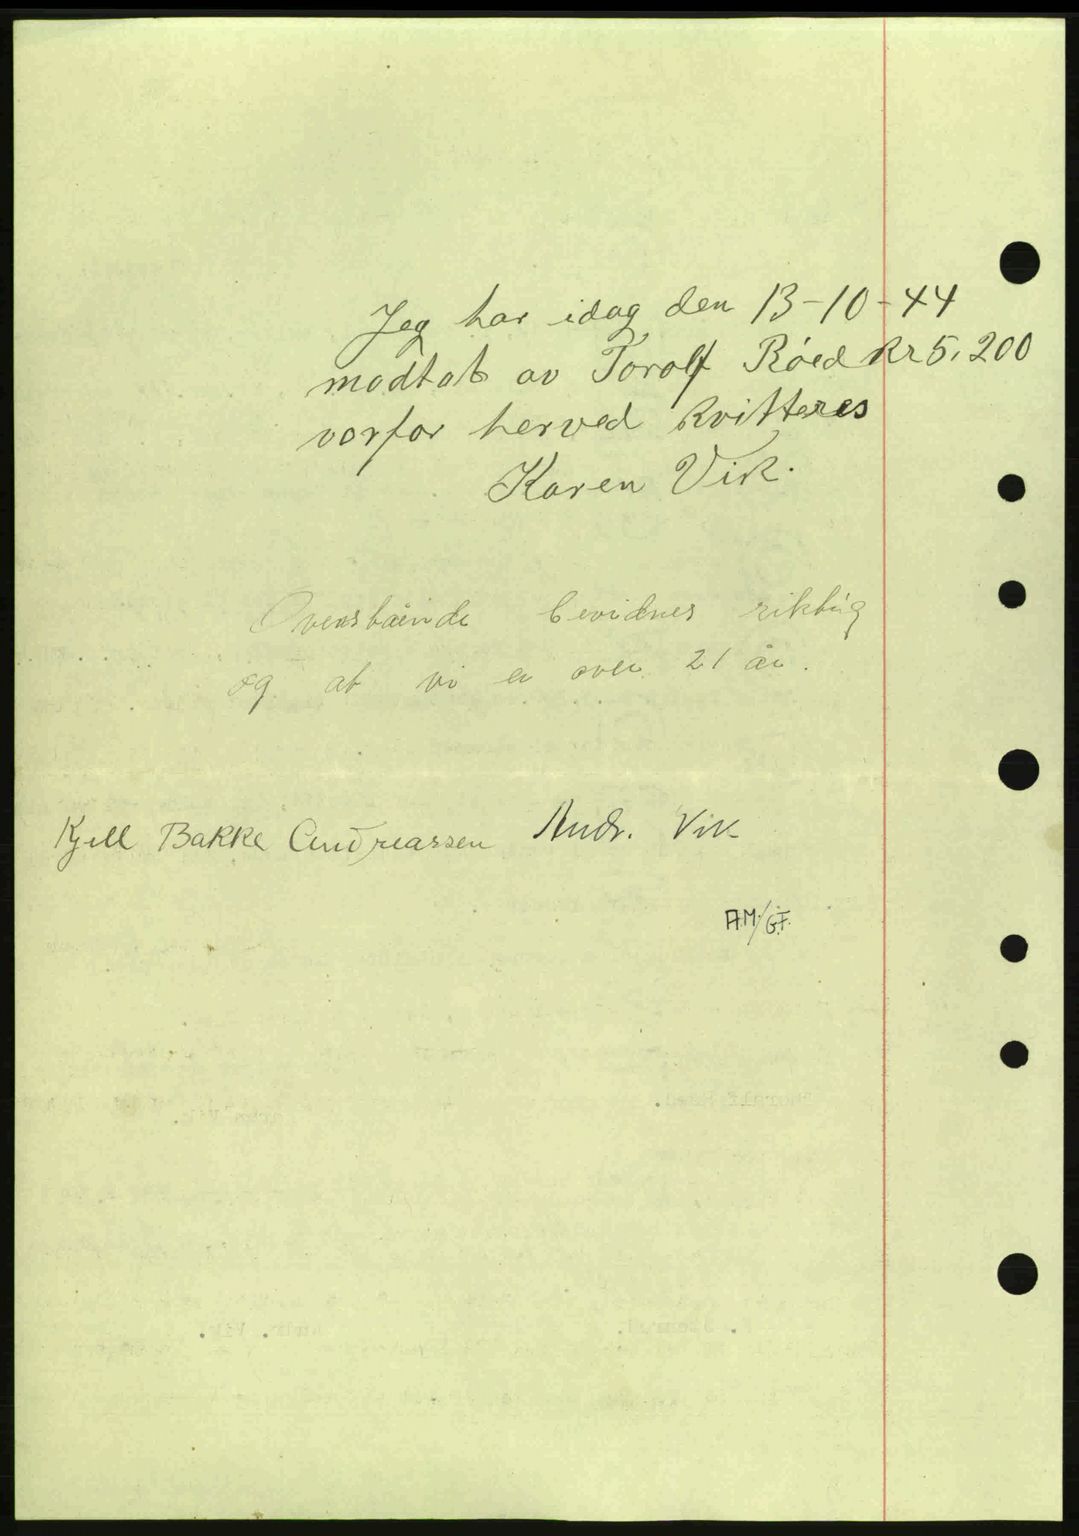 Jeg har idag den 13-10-44
modtat av Torolf Röed kr 5.200
vorfor herved kvitteres
Karen Vik.
Ovenståénde bevidnes riktig
og at vi er over 21 år.
Kjell Bakke Andreassen Andr. Vik
A.M./G.F.
Thoralf Røed. Karen Vik.
Andr. Vik.